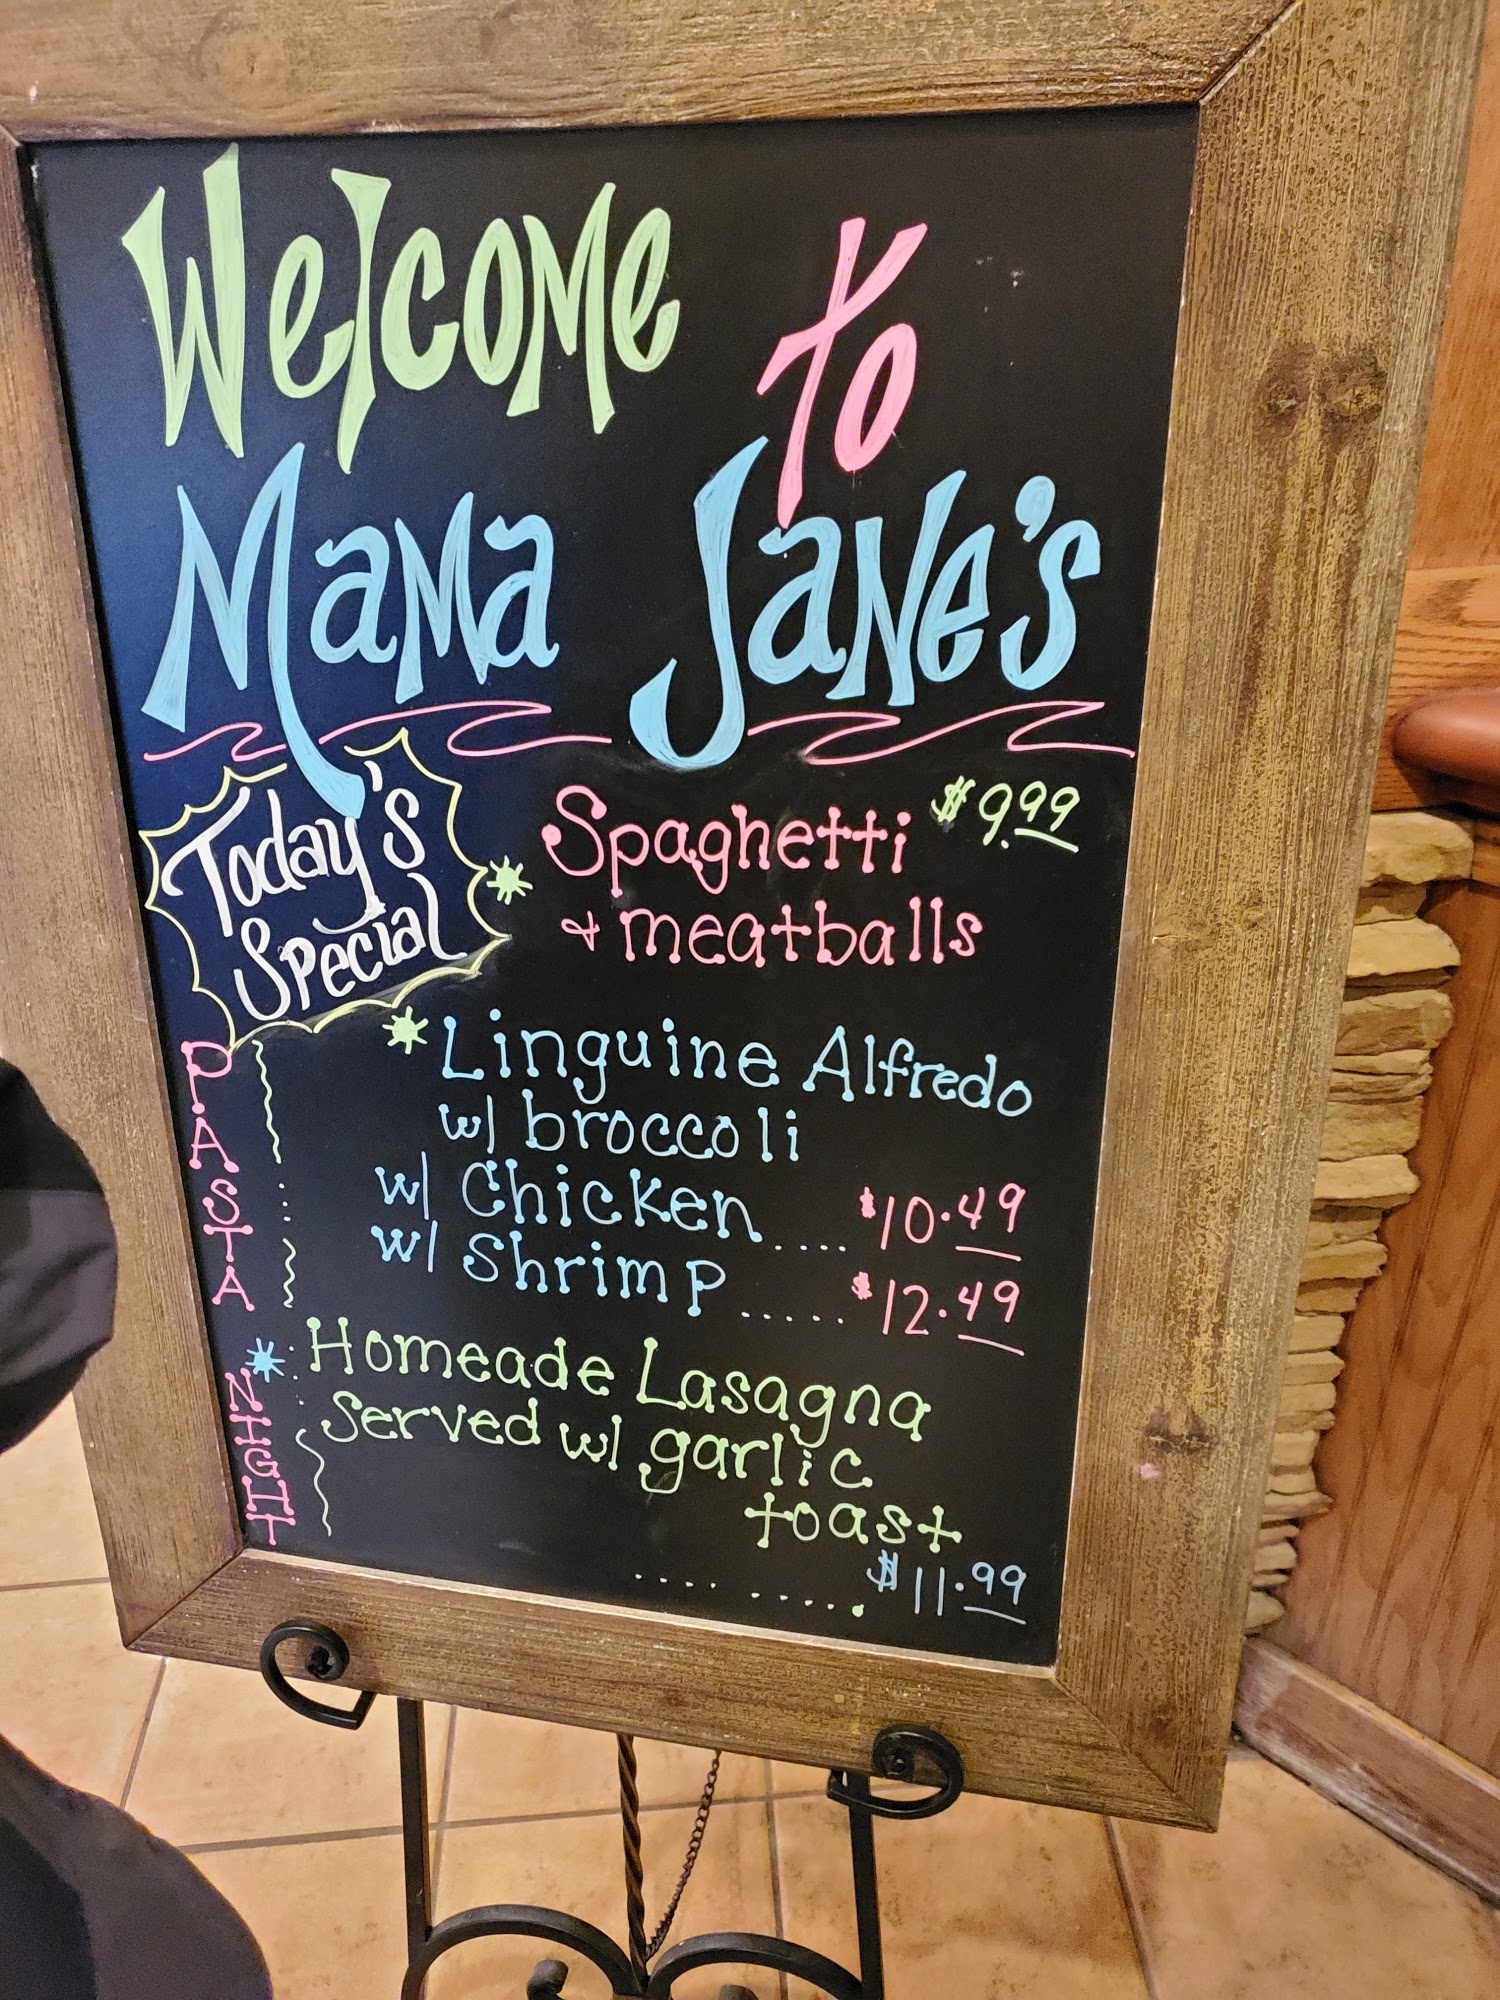 Welcome to
Mama Jane's
Today's
Special
Spaghetti $9.99
& meatballs
Linguine Alfredo
w/ broccoli
w/ Chicken.... $10.49
w/ Shrimp..... $12.49
Homeade Lasagna
Served w/ garlic
toast
.... ..... $11.99
PASTA
NIGHT